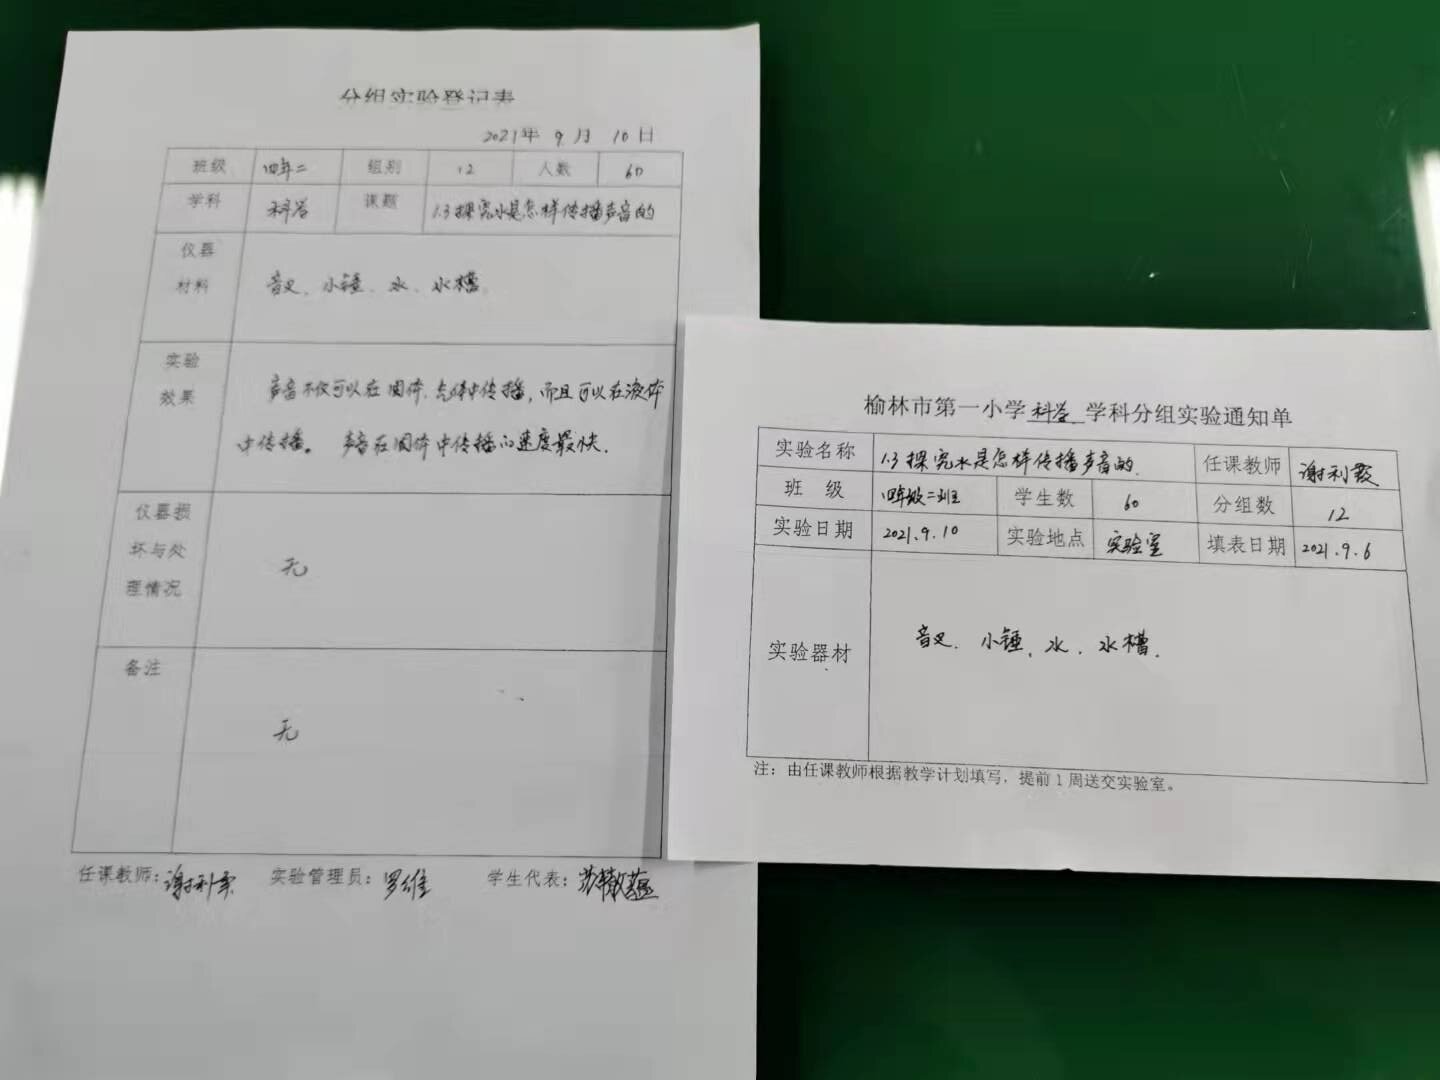 分组实验登记表
2021年 9月 10日
班级 四年二 组别 12 人数 60
学科 科学 课题 1.3探究水是怎样传播声音的
仪器
材料
音叉、小锤、水、水槽
实验
效果
声音不仅可以在固体、气体中传播，而且可以在液体
中传播。 声音在固体中传播的速度最快.
仪器损
坏与处
理情况
无
备注
无
任课教师: 谢利霞 实验管理员: 罗维 学生代表:
榆林市第一小学 科学 学科分组实验通知单
实验名称 1.3探究水是怎样传播声音的. 任课教师 谢利霞
班 级 四年级二班 学生数 60 分组数 12
实验日期 2021.9.10 实验地点 实验室 填表日期 2021.9.6
实验器材 音叉、小锤、水、水槽.
注：由任课教师根据教学计划填写，提前1周送交实验室。